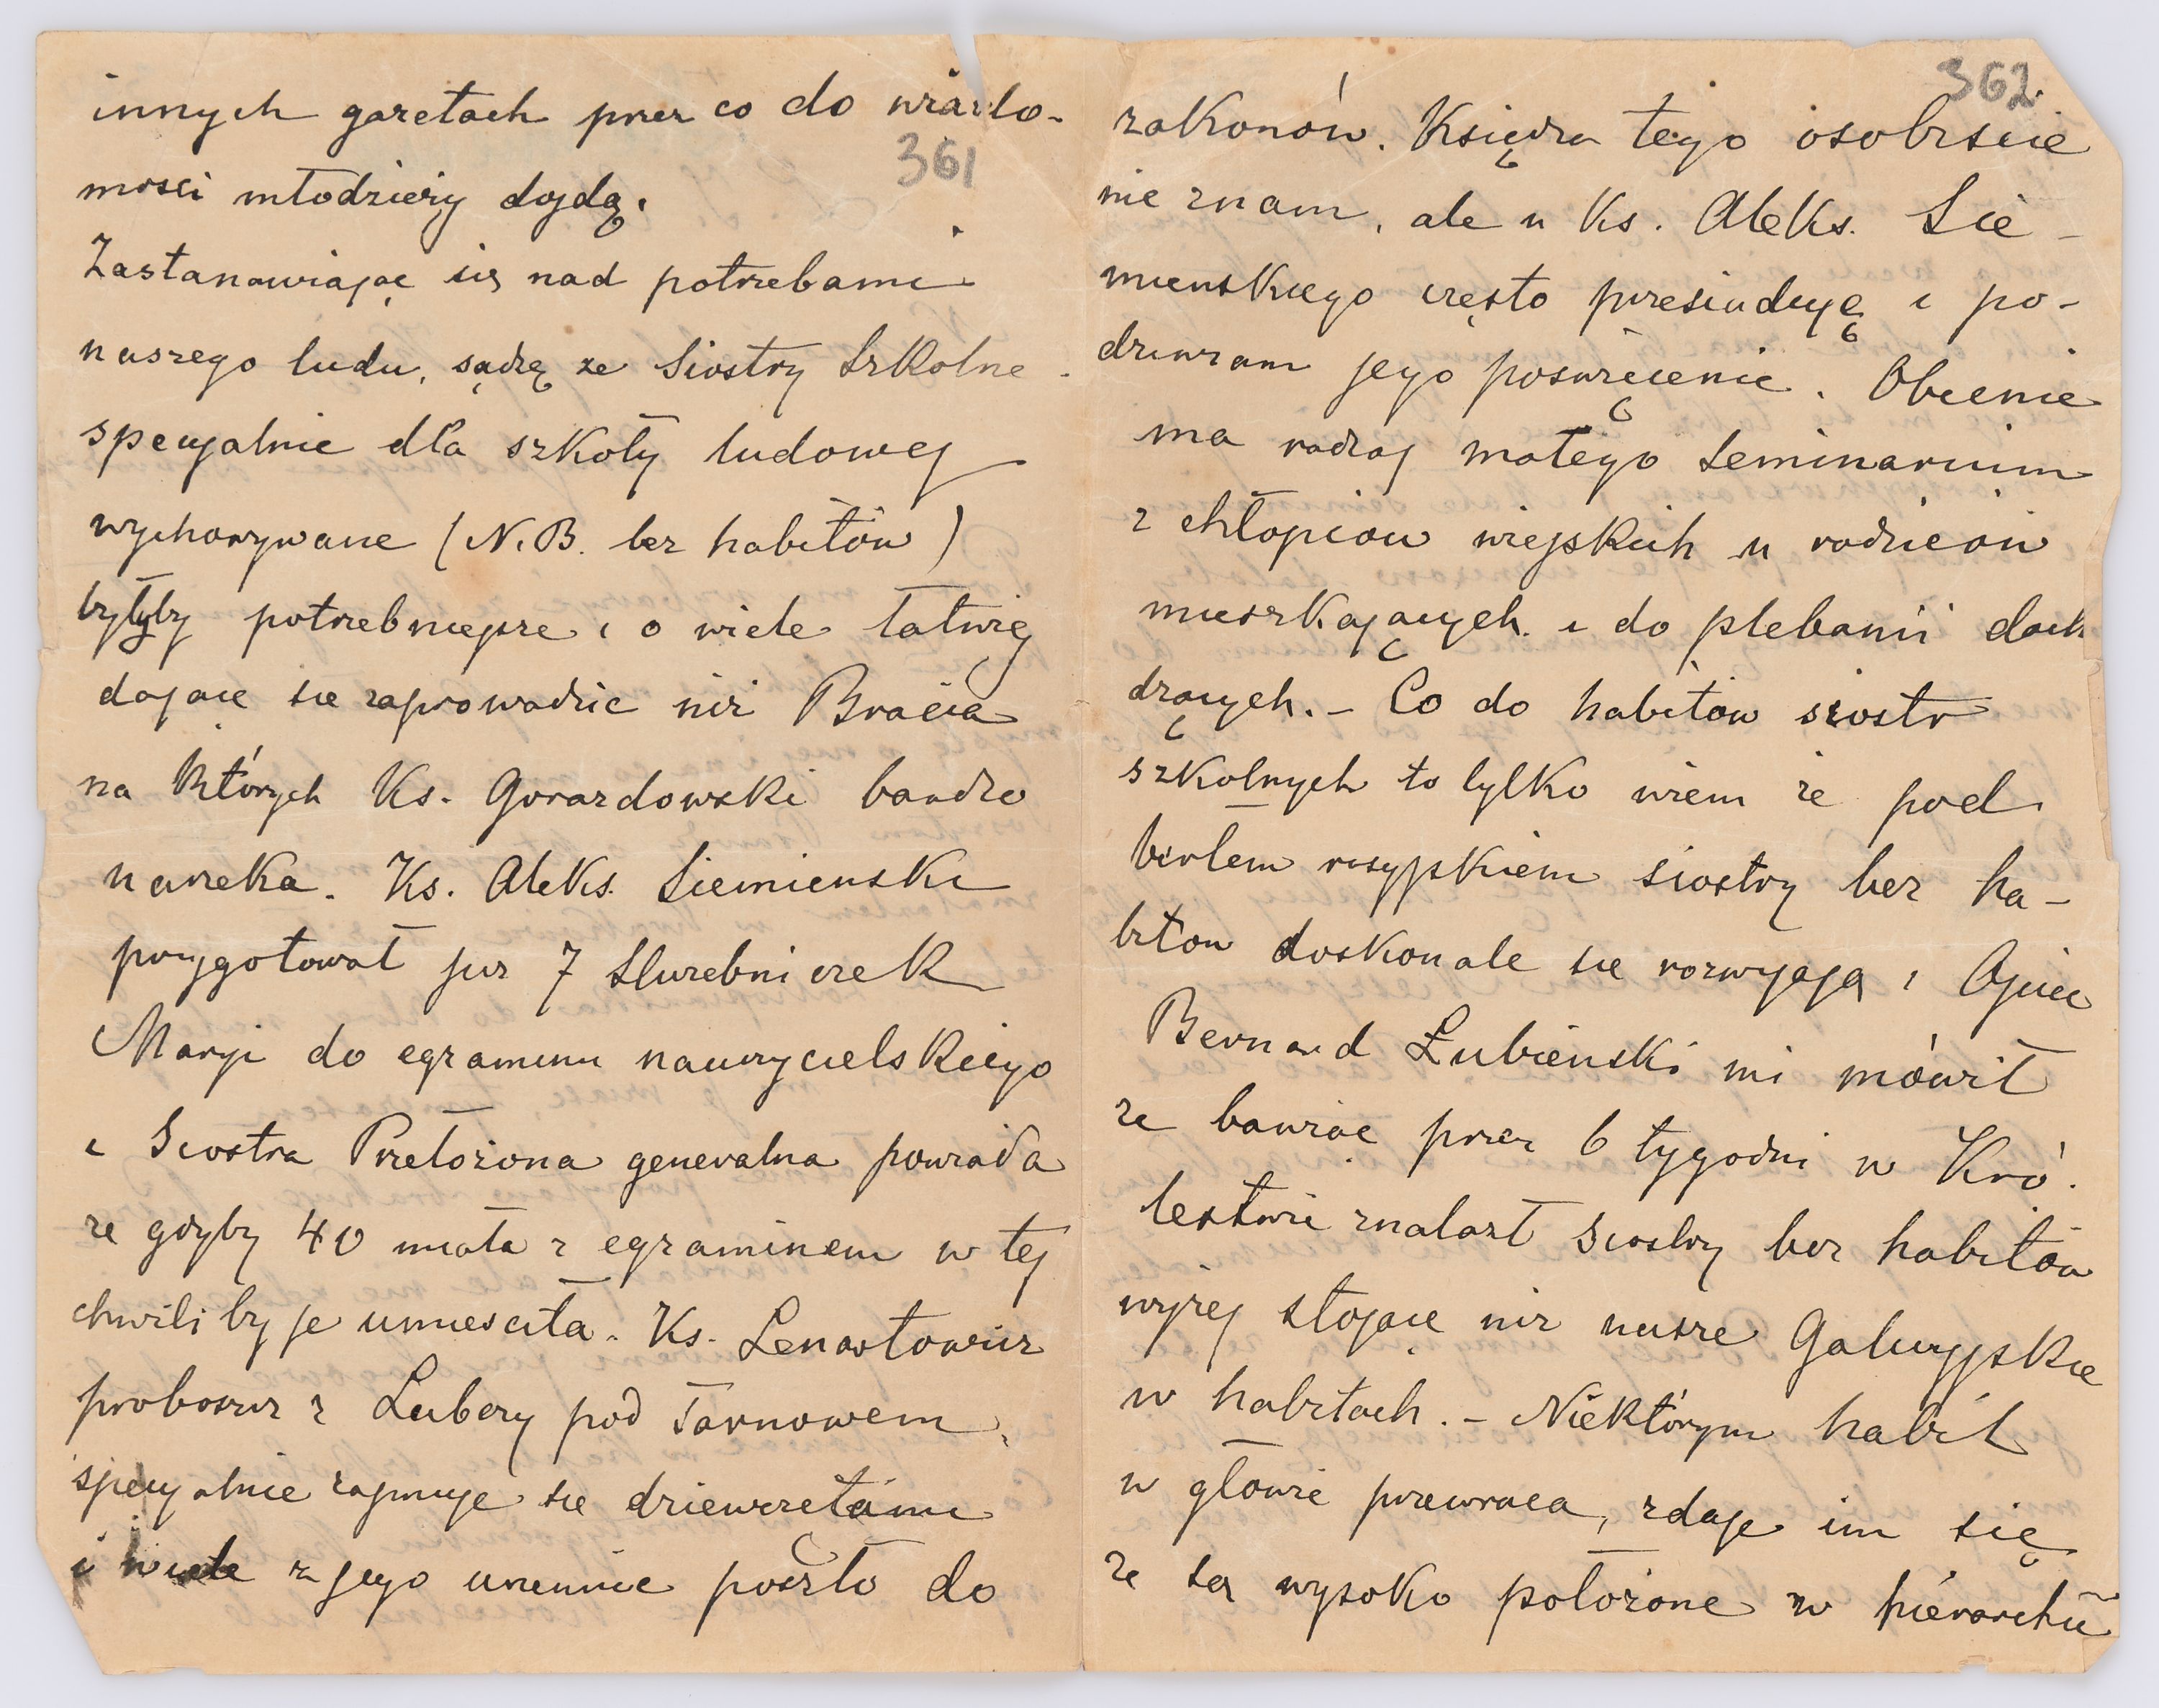 innych gazetach przez co do wiado-
361
mości młodzieży dojdą.
Zastanawiając się nad potrzebami
naszego ludu, sądzę że Siostry Szkolne
specyalnie dla szkoły ludowej
wychowywane (N.B. bez habitów)
byłyby potrzebniejsze i o wiele łatwiej
dające sie zaprowadzic niż Bracia
na których Ks. Gorazdowski bardzo
narzeka. Ks. Aleks. Siemienski
przygotował juz 7 Służebniczek
Maryi do egzaminu nauczycielskiego
i Siostra Przełożona generalna powiada
ze gdyby 40 miała z egzaminem w tej
chwili by je umiesciła. Ks. Lenartowicz
proboszcz z Lubczy pod Tarnowem
specyalnie zajmuje sie dziewczętami
i wiele z jego uczennic poszło do
362.
zakonów. Księdza tego osobiscie
nie znam, ale u Ks. Aleks. Sie-
mienskiego często przesiaduję i po-
dziwiam jego poswięcenie. Obecnie
ma rodzaj małego seminarium
z chłopcow wiejskich u rodziców
mieszkających i do plebanii doch
dzących. – Co do habitów siostr
szkolnych to tylko wiem że pod
berłem rosyjskiem siostry bez ha-
bitow doskonale sie rozwijają i Ojciec
Bernard Łubieński mi mówił
ze bawiąc przez 6 tygodni w Kró-
lestwie znalazł siostry bez habitów
wyżej stojące niz nasze Galicyjskie
w habitach. – Niektórym habit
w głowie przewraca, zdaje im się
że są wysoko położone w hierarchii